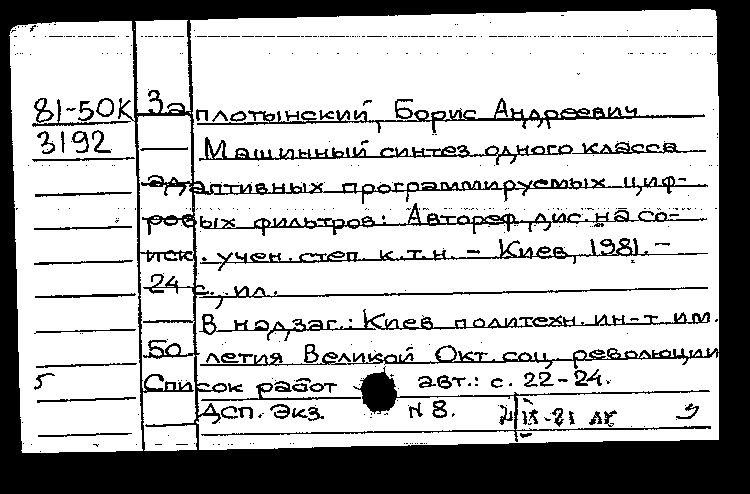 81-50К Заплотынский, Борис Андреевич
3192 Машинный синтез одного класса
адаптивных программируемых циф-
ровых фильтров: Автореф. дис. на со-
иск. учен. степ. к.т.н. - Киев, 1981. -
24 с., ил.
В надзаг.: Киев политехн. ин-т им.
50-летия Великой Окт. соц. революции
5 Список работ авт.: с. 22-24.
ДСП. Экз. N 8.